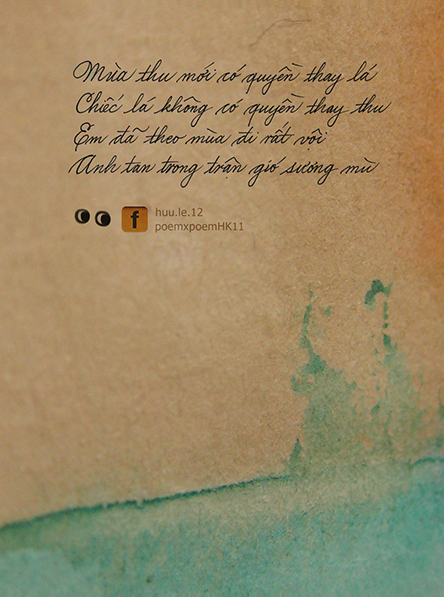 Mùa thu mới có quyền thay lá
Chiếc lá không có quyền thay thu
Em đã theo mùa đi rất vội
Anh tan trong trận gió sương mù
f
huu.le.12
poemxpoemHK11